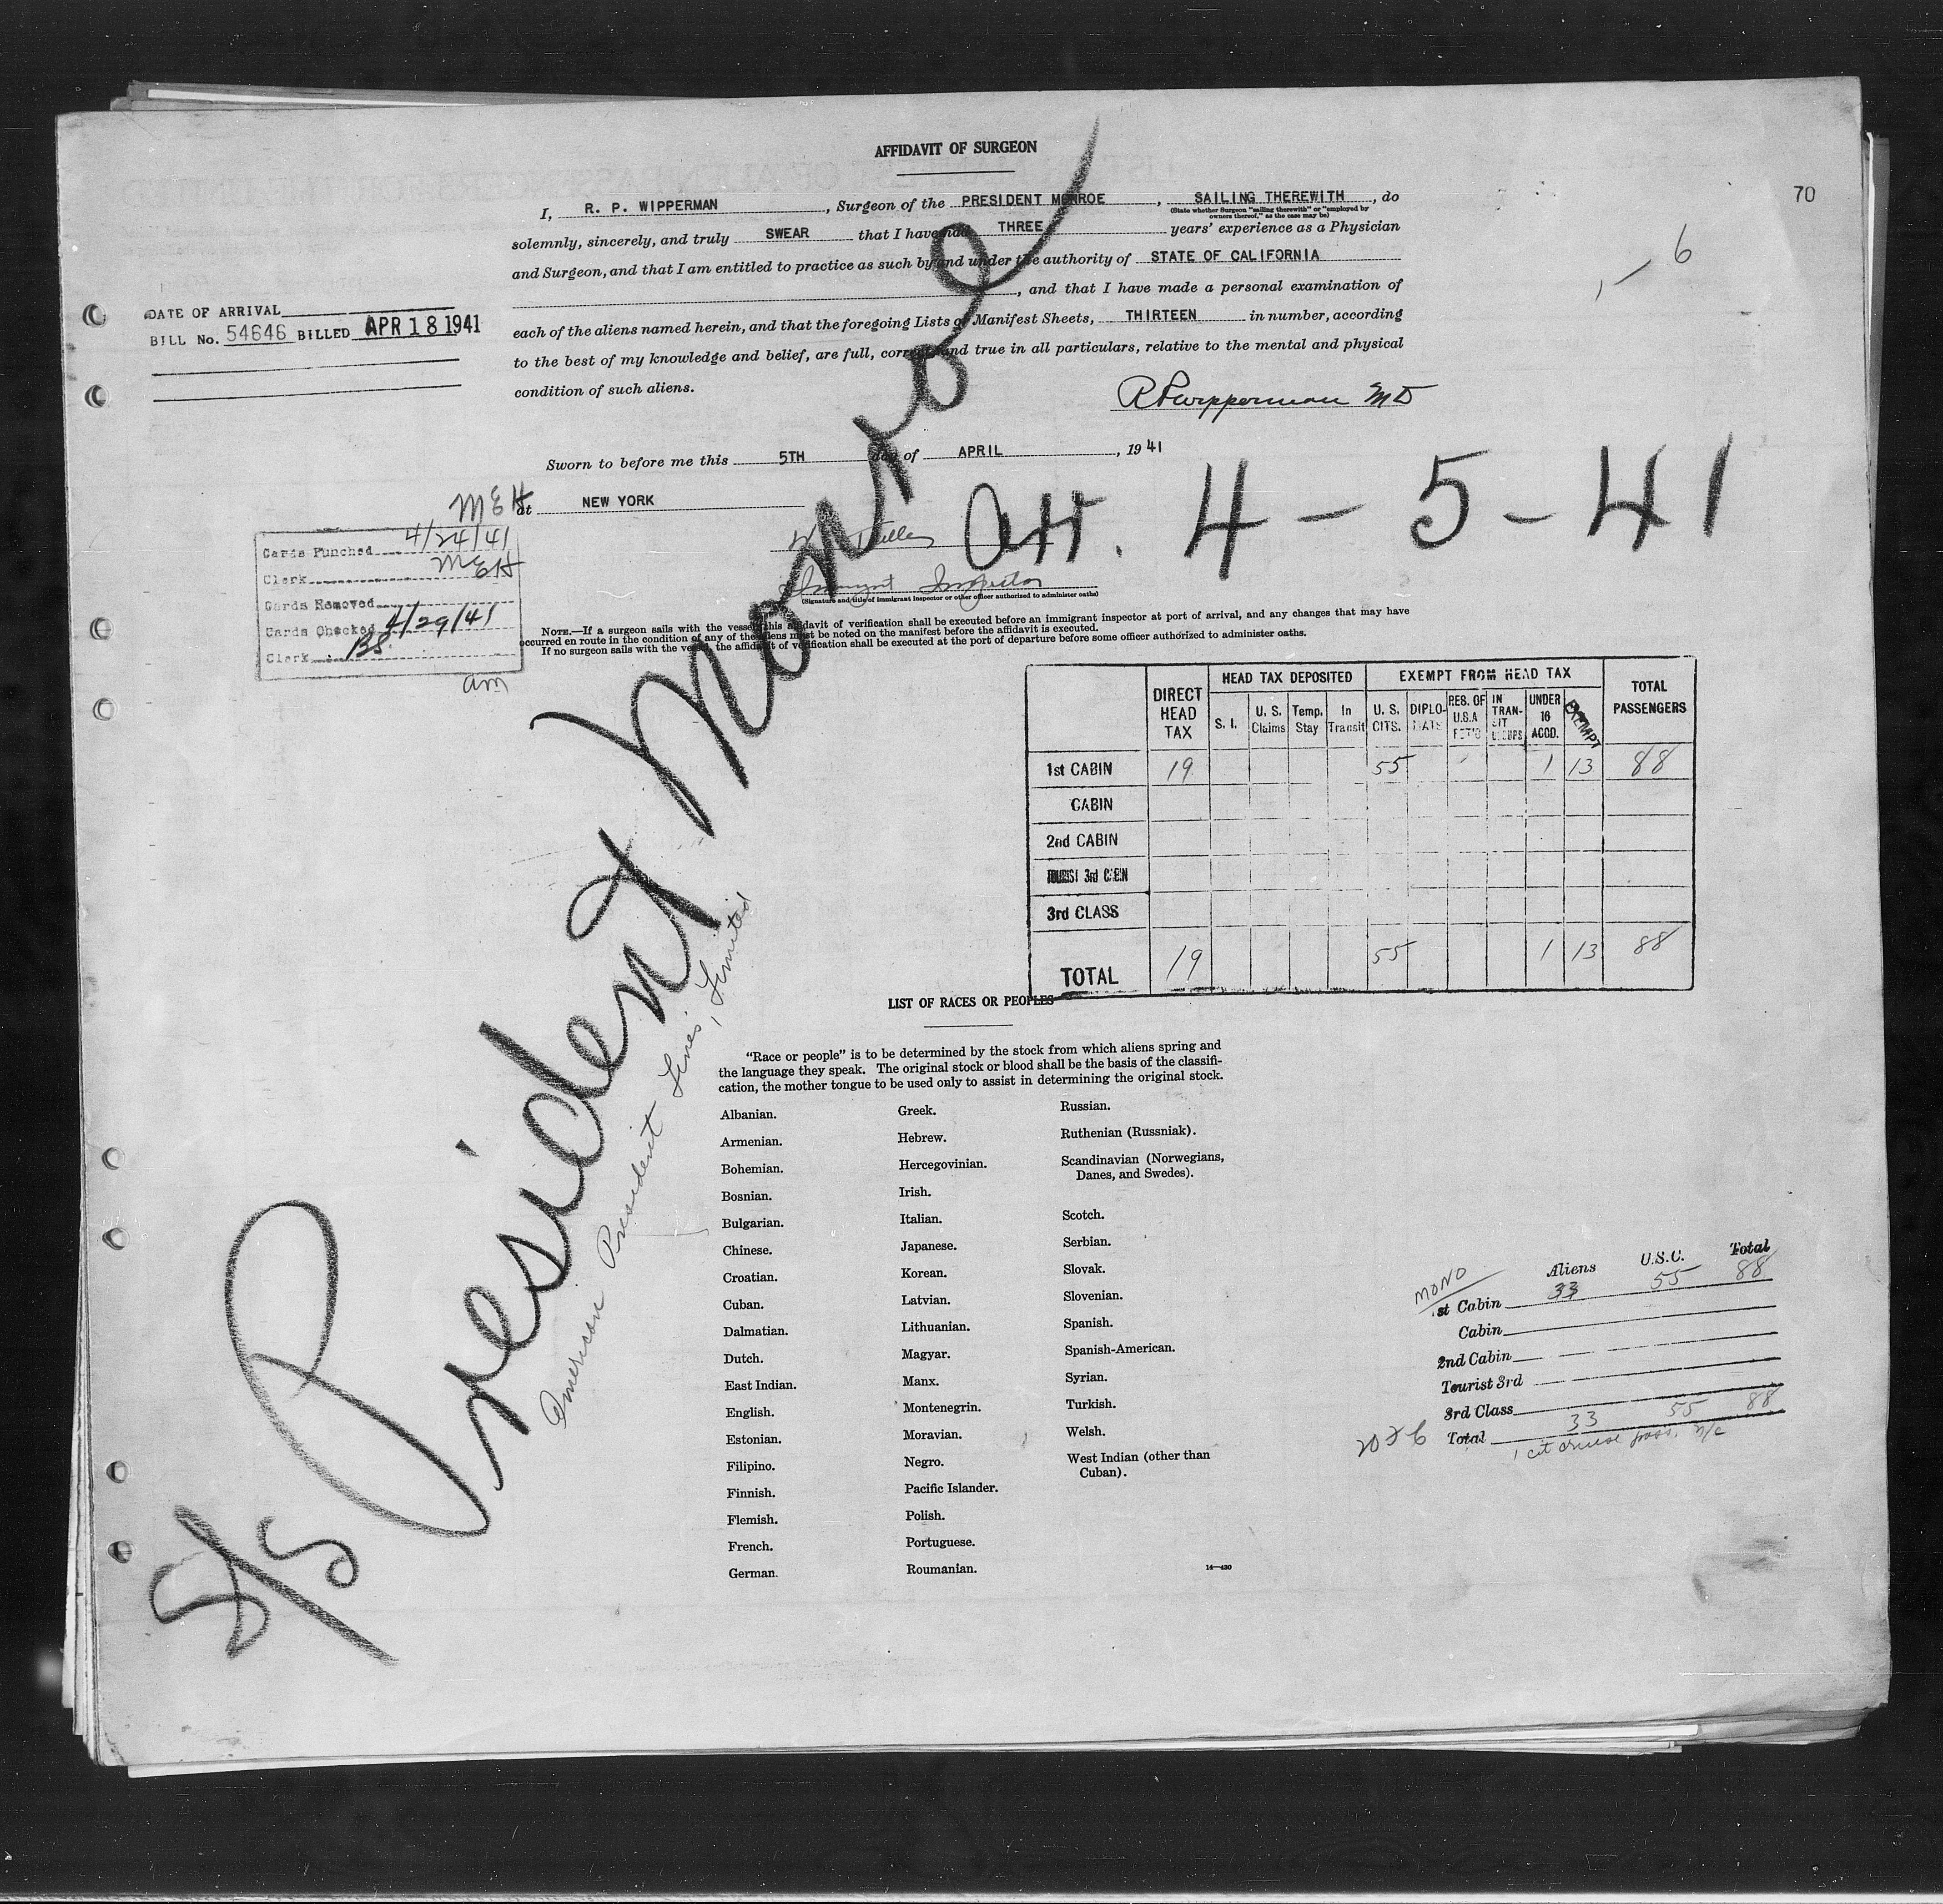 AFFIDAVIT OF SURGEON
70
I, R. P. WIPPERMAN, Surgeon of the PRESIDENT MONROE, SAILING THEREWITH, do
(State whether Surgeon "sailing therewith" or "employed by
owners thereof," as the case may be)
solemnly, sincerely, and truly SWEAR that I have had THREE years' experience as a Physician
and Surgeon, and that I am entitled to practice as such by and under the authority of STATE OF CALIFORNIA
, and that I have made a personal examination of
each of the aliens named herein, and that the foregoing Lists or Manifest Sheets, THIRTEEN in number, according
to the best of my knowledge and belief, are full, correct and true in all particulars, relative to the mental and physical
condition of such aliens.
6
DATE OF ARRIVAL
BILL No. 54646 BILLED APR 18 1941
R P Wipperman MD
Sworn to before me this 5TH day of APRIL, 19 41
at NEW YORK
Arr. 4-5-41
Immigrant Inspector
(Signature and title of immigrant inspector or other officer authorized to administer oaths)
MEH
Cards Punched 4/24/41
Clerk MEH
Cards Removed
Cards Checked 4/29/41
Clerk
am
NOTE.—If a surgeon sails with the vessel, this affidavit of verification shall be executed before an immigrant inspector at port of arrival, and any changes that may have
occurred en route in the condition of any of the aliens must be noted on the manifest before the affidavit is executed.
If no surgeon sails with the vessel, the affidavit of verification shall be executed at the port of departure before some officer authorized to administer oaths.
S/S President Monroe
American President Lines, Limited
DIRECT HEAD TAX
HEAD TAX DEPOSITED
EXEMPT FROM HEAD TAX
TOTAL PASSENGERS
S. I. U. S. Claims Temp. Stay In Transit U. S. CITS. DIPLOMATS RES. OF U.S.A RET'G IN TRANSIT UNDER 16 ACCD. EXEMPT
1st CABIN 19 55 1 13 88
CABIN
2nd CABIN
TOURIST 3rd CABIN
3rd CLASS
TOTAL 19 55 1 13 88
LIST OF RACES OR PEOPLES
"Race or people" is to be determined by the stock from which aliens spring and
the language they speak. The original stock or blood shall be the basis of the classifi-
cation, the mother tongue to be used only to assist in determining the original stock.
Albanian.
Armenian.
Bohemian.
Bosnian.
Bulgarian.
Chinese.
Croatian.
Cuban.
Dalmatian.
Dutch.
East Indian.
English.
Estonian.
Filipino.
Finnish.
Flemish.
French.
German.
Greek.
Hebrew.
Hercegovinian.
Irish.
Italian.
Japanese.
Korean.
Latvian.
Lithuanian.
Magyar.
Manx.
Montenegrin.
Moravian.
Negro.
Pacific Islander.
Polish.
Portuguese.
Roumanian.
Russian.
Ruthenian (Russniak).
Scandinavian (Norwegians,
Danes, and Swedes).
Scotch.
Serbian.
Slovak.
Slovenian.
Spanish.
Spanish-American.
Syrian.
Turkish.
Welsh.
West Indian (other than
Cuban).
14—430
MONO
Aliens U.S.C. Total
1st Cabin 33 55 88
Cabin
2nd Cabin
Tourist 3rd
3rd Class
Total 33 55 88
1 cit cruise pass. n/c